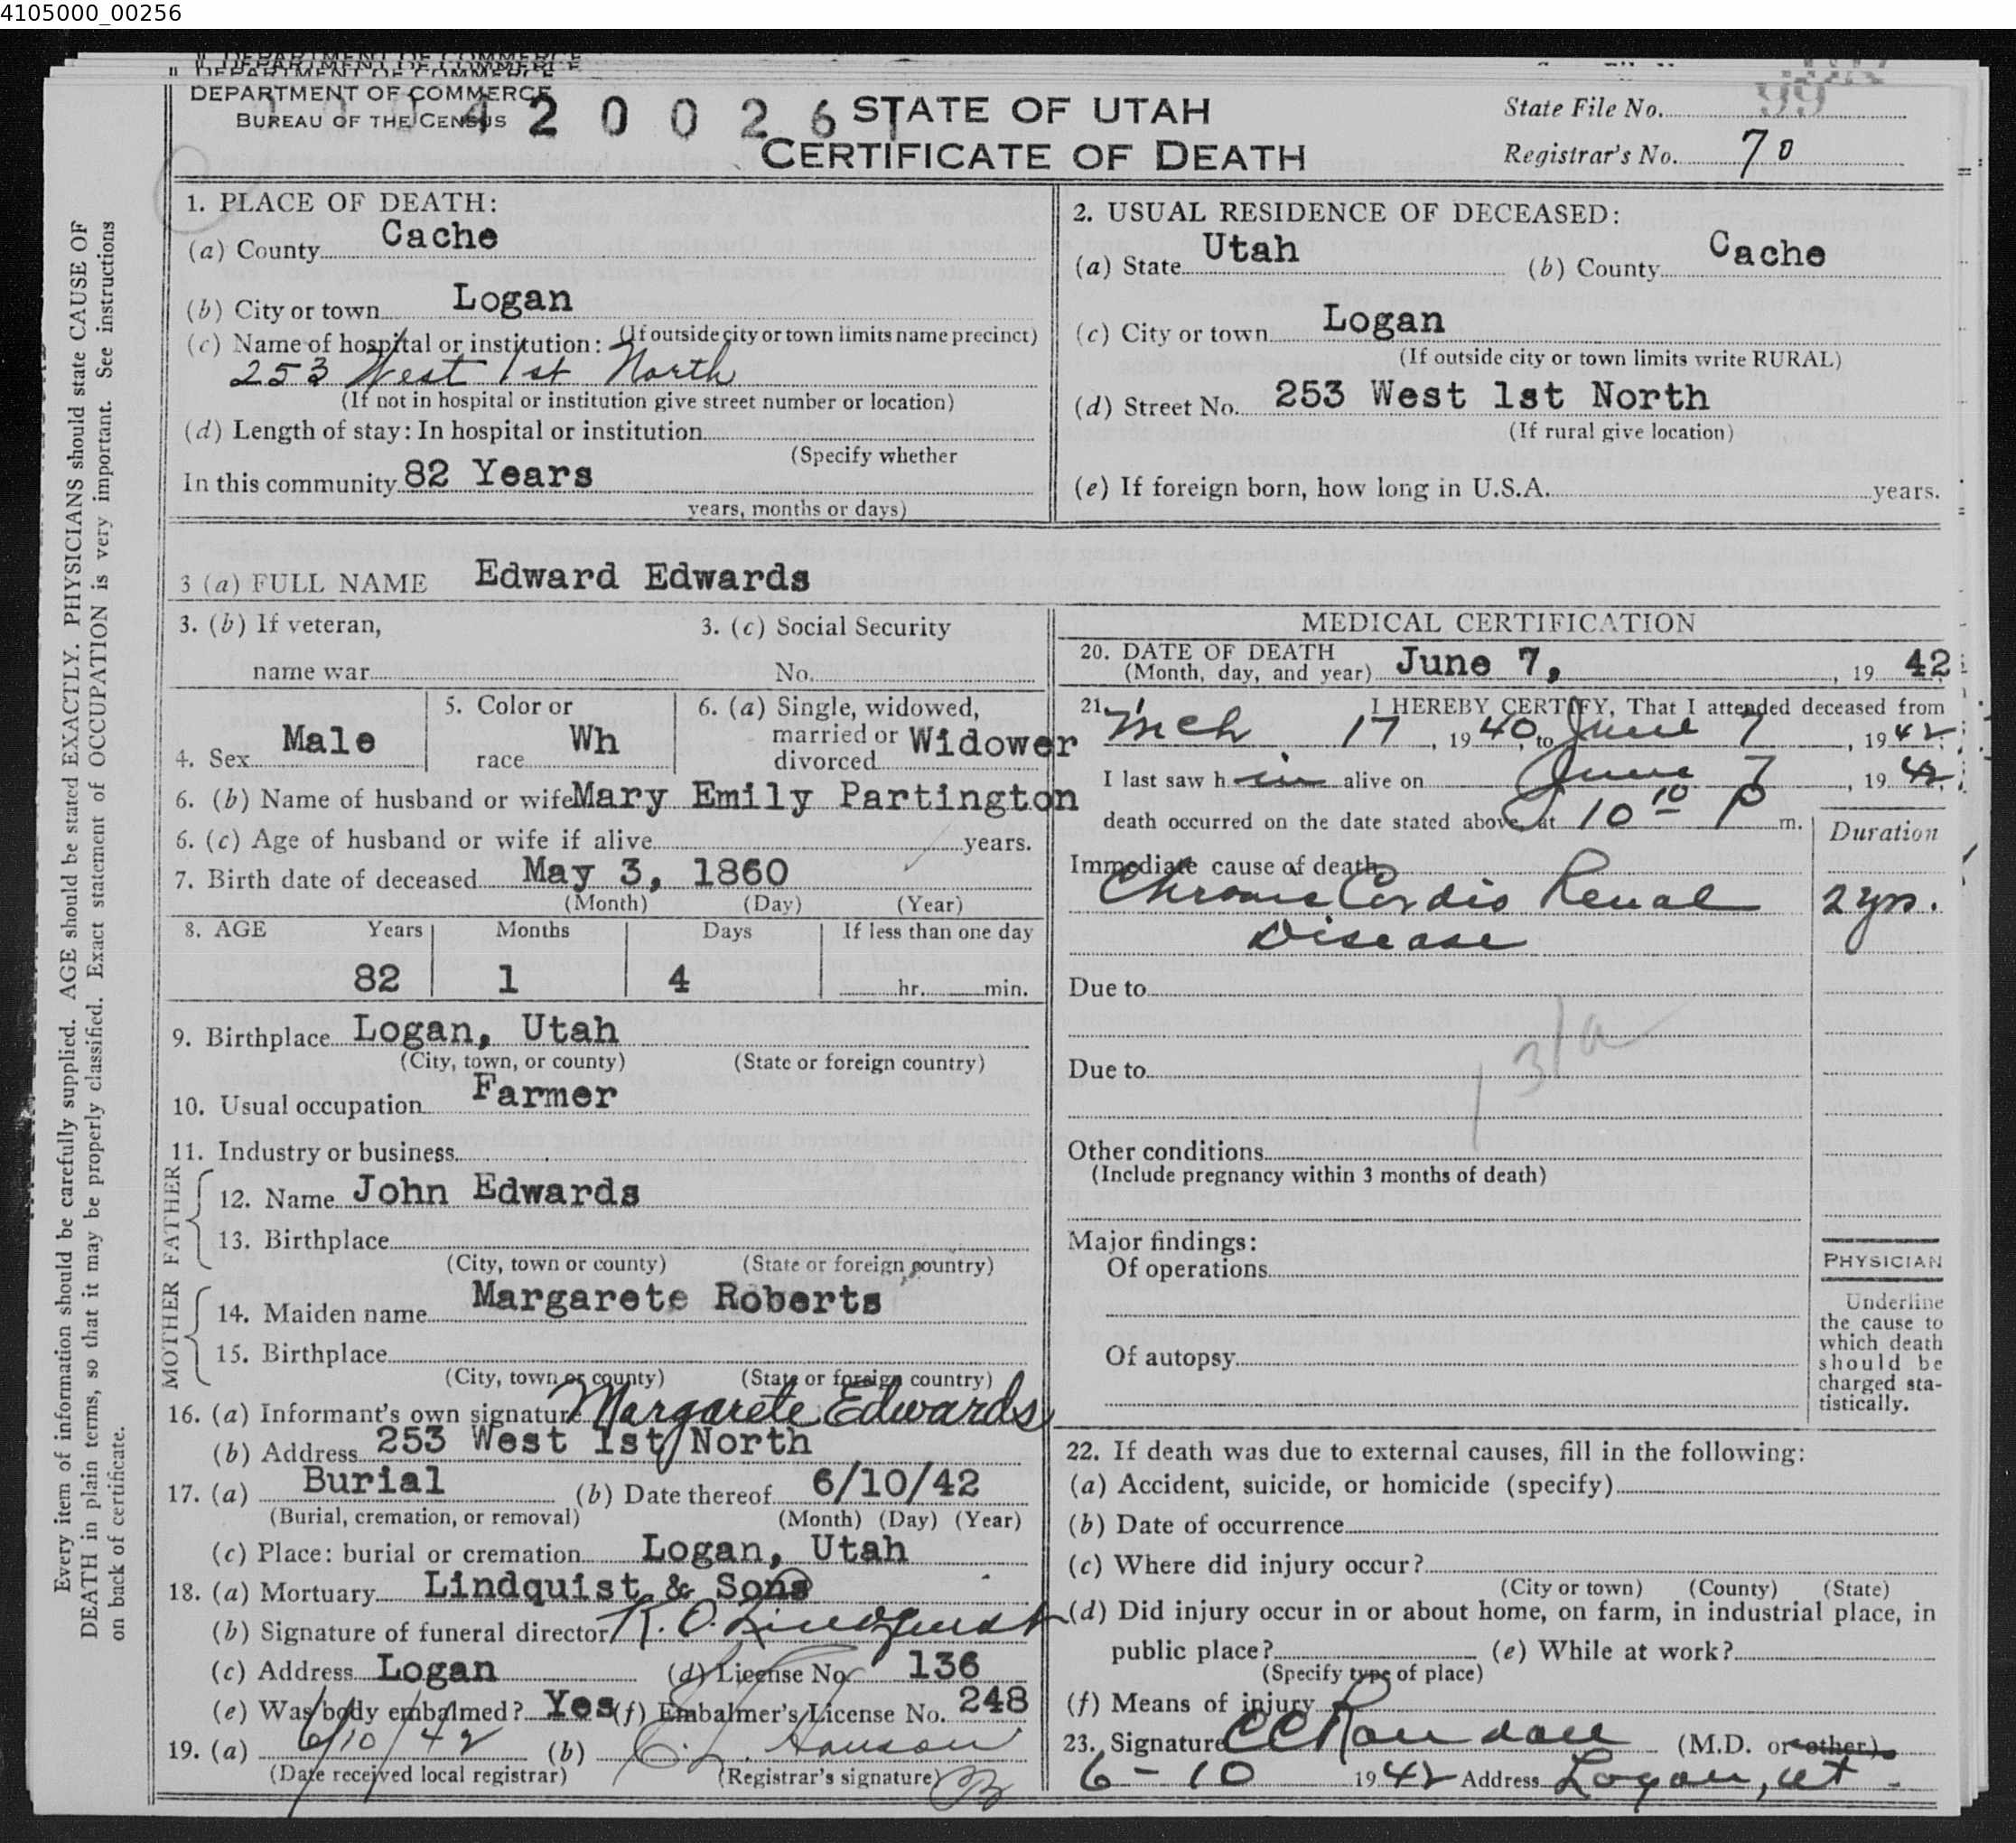 4105000_00256
DEPARTMENT OF COMMERCE
BUREAU OF THE CENSUS
4 2 0 0 2 6 1
STATE OF UTAH
CERTIFICATE OF DEATH
State File No. 99
Registrar's No. 70
1. PLACE OF DEATH:
(a) County Cache
(b) City or town Logan
(If outside city or town limits name precinct)
(c) Name of hospital or institution:
253 West 1st North
(If not in hospital or institution give street number or location)
(d) Length of stay: In hospital or institution
(Specify whether
In this community 82 Years
years, months or days)
2. USUAL RESIDENCE OF DECEASED:
(a) State Utah (b) County Cache
(c) City or town Logan
(If outside city or town limits write RURAL)
(d) Street No. 253 West 1st North
(If rural give location)
(e) If foreign born, how long in U.S.A. years.
3 (a) FULL NAME Edward Edwards
3. (b) If veteran, 3. (c) Social Security
name war No.
4. Sex Male
5. Color or
race Wh
6. (a) Single, widowed,
married or
divorced Widower
6. (b) Name of husband or wife Mary Emily Partington
6. (c) Age of husband or wife if alive years.
7. Birth date of deceased May 3, 1860
(Month) (Day) (Year)
8. AGE Years Months Days If less than one day
82 1 4 hr. min.
9. Birthplace Logan, Utah
(City, town, or county) (State or foreign country)
10. Usual occupation Farmer
11. Industry or business
FATHER
12. Name John Edwards
13. Birthplace
(City, town or county) (State or foreign country)
MOTHER
14. Maiden name Margarete Roberts
15. Birthplace
(City, town or county) (State or foreign country)
16. (a) Informant's own signature Margarete Edwards
(b) Address 253 West 1st North
17. (a) Burial (b) Date thereof 6/10/42
(Burial, cremation, or removal) (Month) (Day) (Year)
(c) Place: burial or cremation Logan, Utah
18. (a) Mortuary Lindquist & Sons
(b) Signature of funeral director R. O. Lindquist
(c) Address Logan (d) License No. 136
(e) Was body embalmed? Yes (f) Embalmer's License No. 248
19. (a) 6/10/42 (b) Hanson
(Date received local registrar) (Registrar's signature)
MEDICAL CERTIFICATION
20. DATE OF DEATH
(Month, day, and year) June 7, , 19 42
21. I HEREBY CERTIFY, That I attended deceased from
Mch 17, 1940, to June 7, 1942;
I last saw h im alive on June 7, 1942;
death occurred on the date stated above, at 10 10 P m.
Duration
Immediate cause of death
Chronic Cardio Renal 2 yrs.
Disease
Due to
Due to
131a
Other conditions
(Include pregnancy within 3 months of death)
Major findings:
Of operations
Of autopsy
PHYSICIAN
Underline
the cause to
which death
should be
charged sta-
tistically.
22. If death was due to external causes, fill in the following:
(a) Accident, suicide, or homicide (specify)
(b) Date of occurrence
(c) Where did injury occur?
(City or town) (County) (State)
(d) Did injury occur in or about home, on farm, in industrial place, in
public place? (e) While at work?
(Specify type of place)
(f) Means of injury
23. Signature CC Randall (M.D. or other)
6-10 1942 Address Logan, Ut.
Every item of information should be carefully supplied. AGE should be stated EXACTLY. PHYSICIANS should state CAUSE OF
DEATH in plain terms, so that it may be properly classified. Exact statement of OCCUPATION is very important. See instructions
on back of certificate.